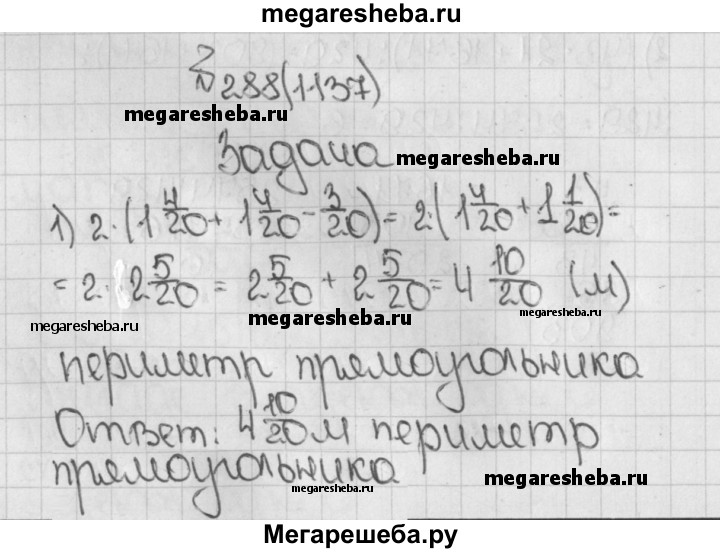 megaresheba.ru
№ 288(1137)
megaresheba.ru
Задача megaresheba.ru
1) 2·(1 4/20 + 1 4/20 - 3/20) = 2·(1 4/20 + 1 1/20) =
= 2· 2 5/20 = 2 5/20 + 2 5/20 = 4 10/20 (м)
megaresheba.ru megaresheba.ru megaresheba.ru
периметр прямоугольника
Ответ: 4 10/20 м периметр
прямоугольника megaresheba.ru megaresheba.ru
Мегарешеба.ру